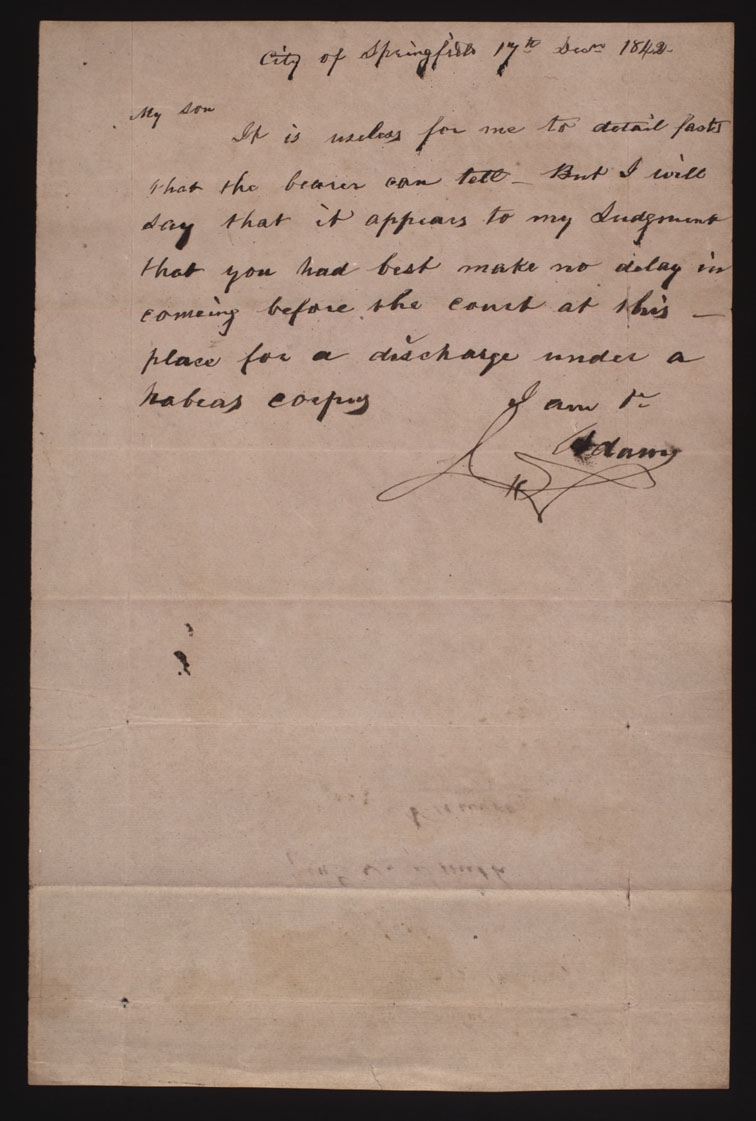 City of Springfield 17th Decm 1842
My son
It is useless for me to detail facts
that the bearer can tell — But I will
say that it appears to my Judgment
that you had best make no delay in
comeing before the court at this —
place for a discharge under a
habeas corpus
I am &c
J Adams